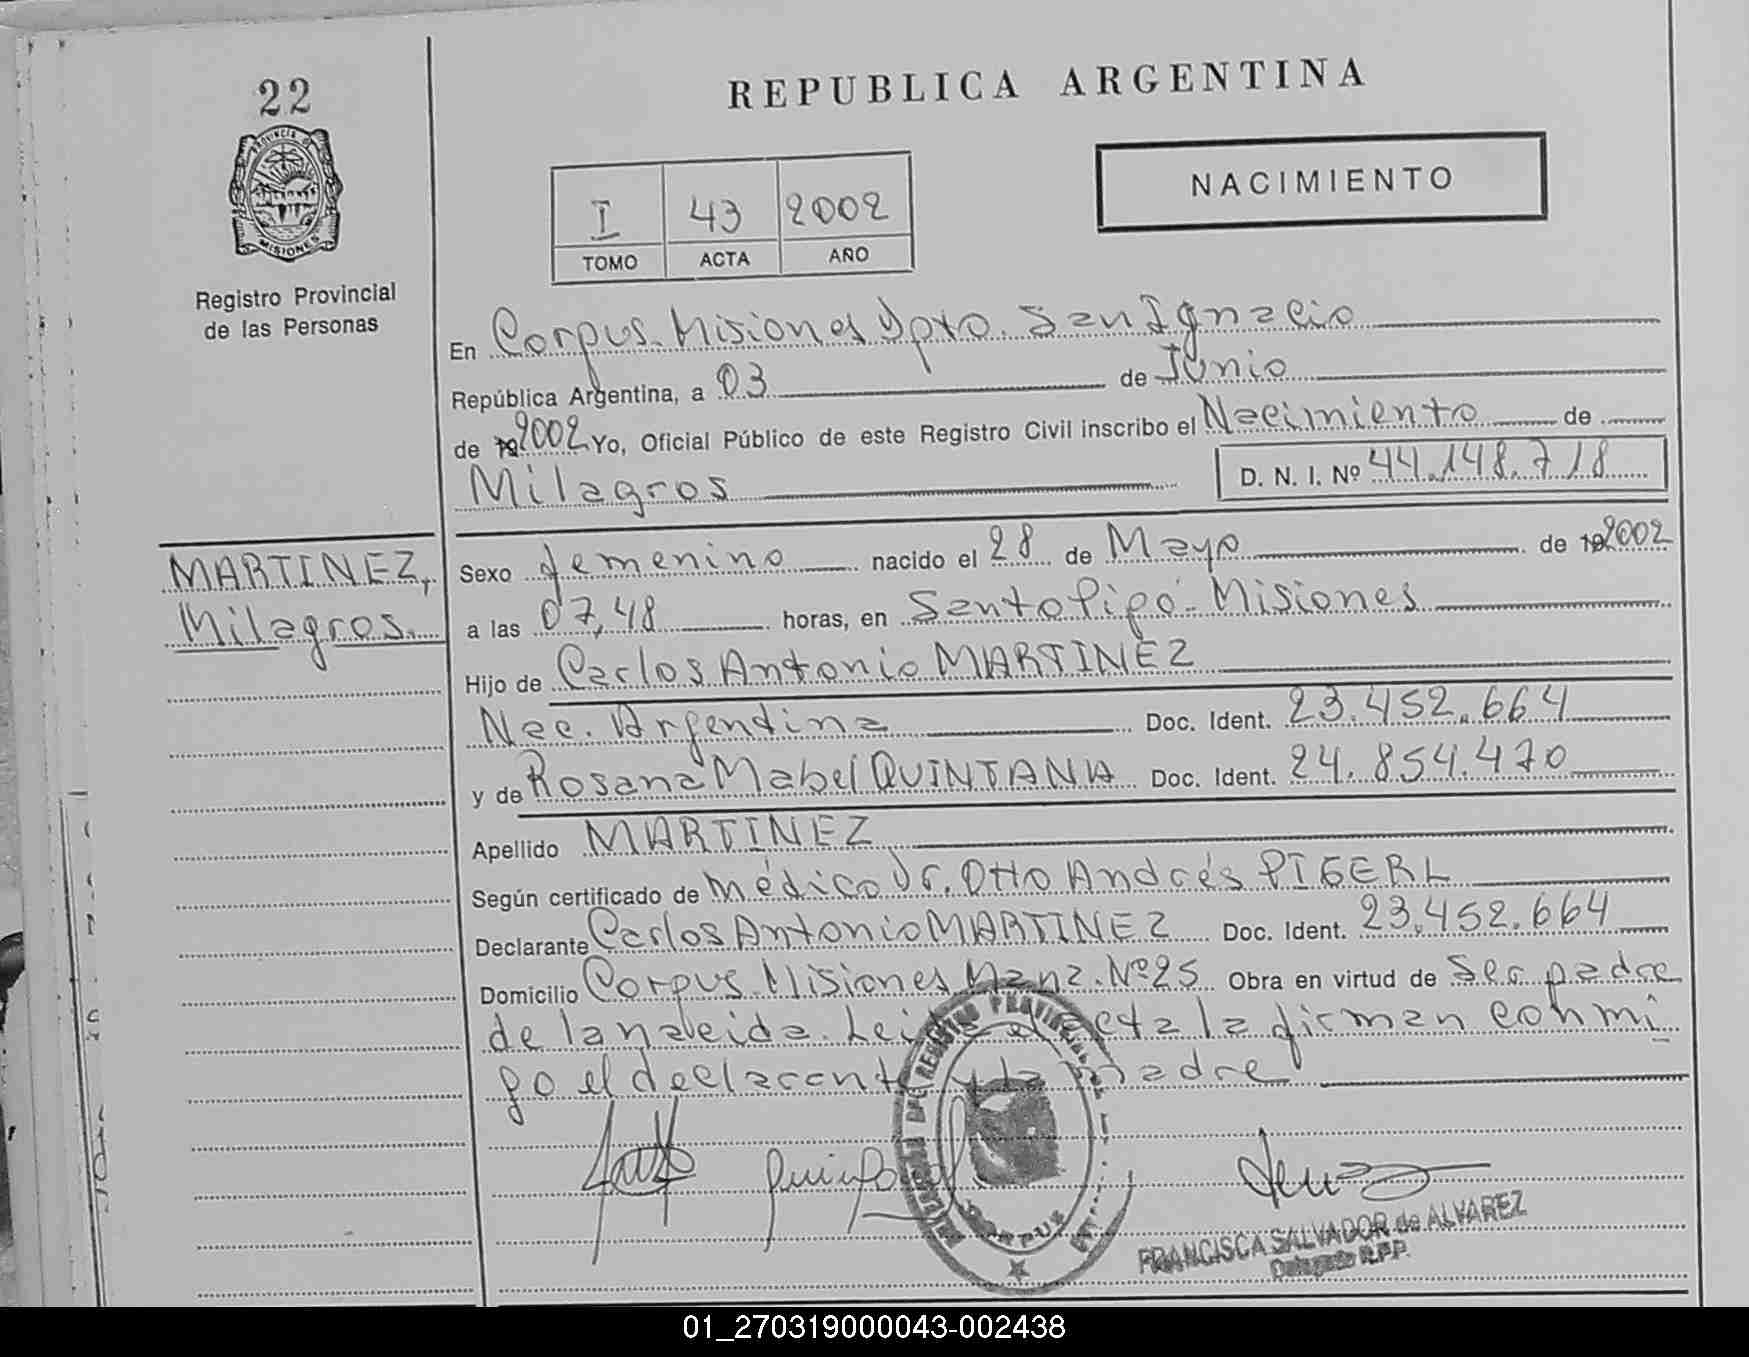 22
REPUBLICA ARGENTINA
PROVINCIA DE MISIONES
Registro Provincial
de las Personas
I 43 2002
TOMO ACTA AÑO
NACIMIENTO
En Corpus. Misiones Dpto. San Ignacio
República Argentina, a 03 de Junio
de 192002 Yo, Oficial Público de este Registro Civil inscribo el Nacimiento de
Milagros D. N. I. Nº 44.148.718
MARTINEZ,
Milagros.
Sexo femenino nacido el 28 de Mayo de 192002
a las 07,48 horas, en Santo Pipó - Misiones
Hijo de Carlos Antonio MARTINEZ
Nac. Argentina Doc. Ident. 23.452.664
y de Rosana Mabel QUINTANA Doc. Ident. 24.854.470
Apellido MARTINEZ
Según certificado de médico Dr. Otto Andrés PIGERL
Declarante Carlos Antonio MARTINEZ Doc. Ident. 23.452.664
Domicilio Corpus. Misiones Manz. Nº25 Obra en virtud de Ser padre
de la nacida. Leida el acta la firman conmi
go el declarante y la madre
CORPUS
FRANCISCA SALVADOR de ALVAREZ
Delegada R.P.P.
01_270319000043-002438